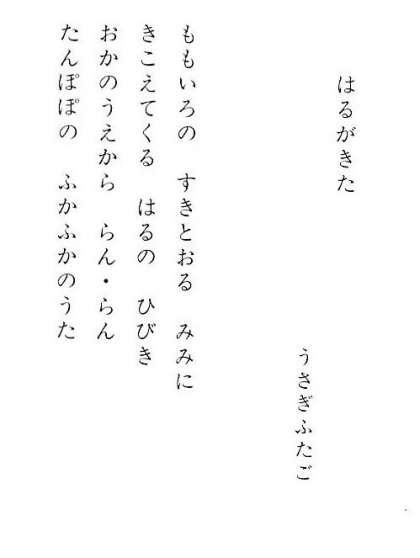 はるがきた
うさぎふたご
ももいろの　すきとおる　みみに
きこえてくる　はるの　ひびき
おかのうえから　らん・らん
たんぽぽの　ふかふかのうた